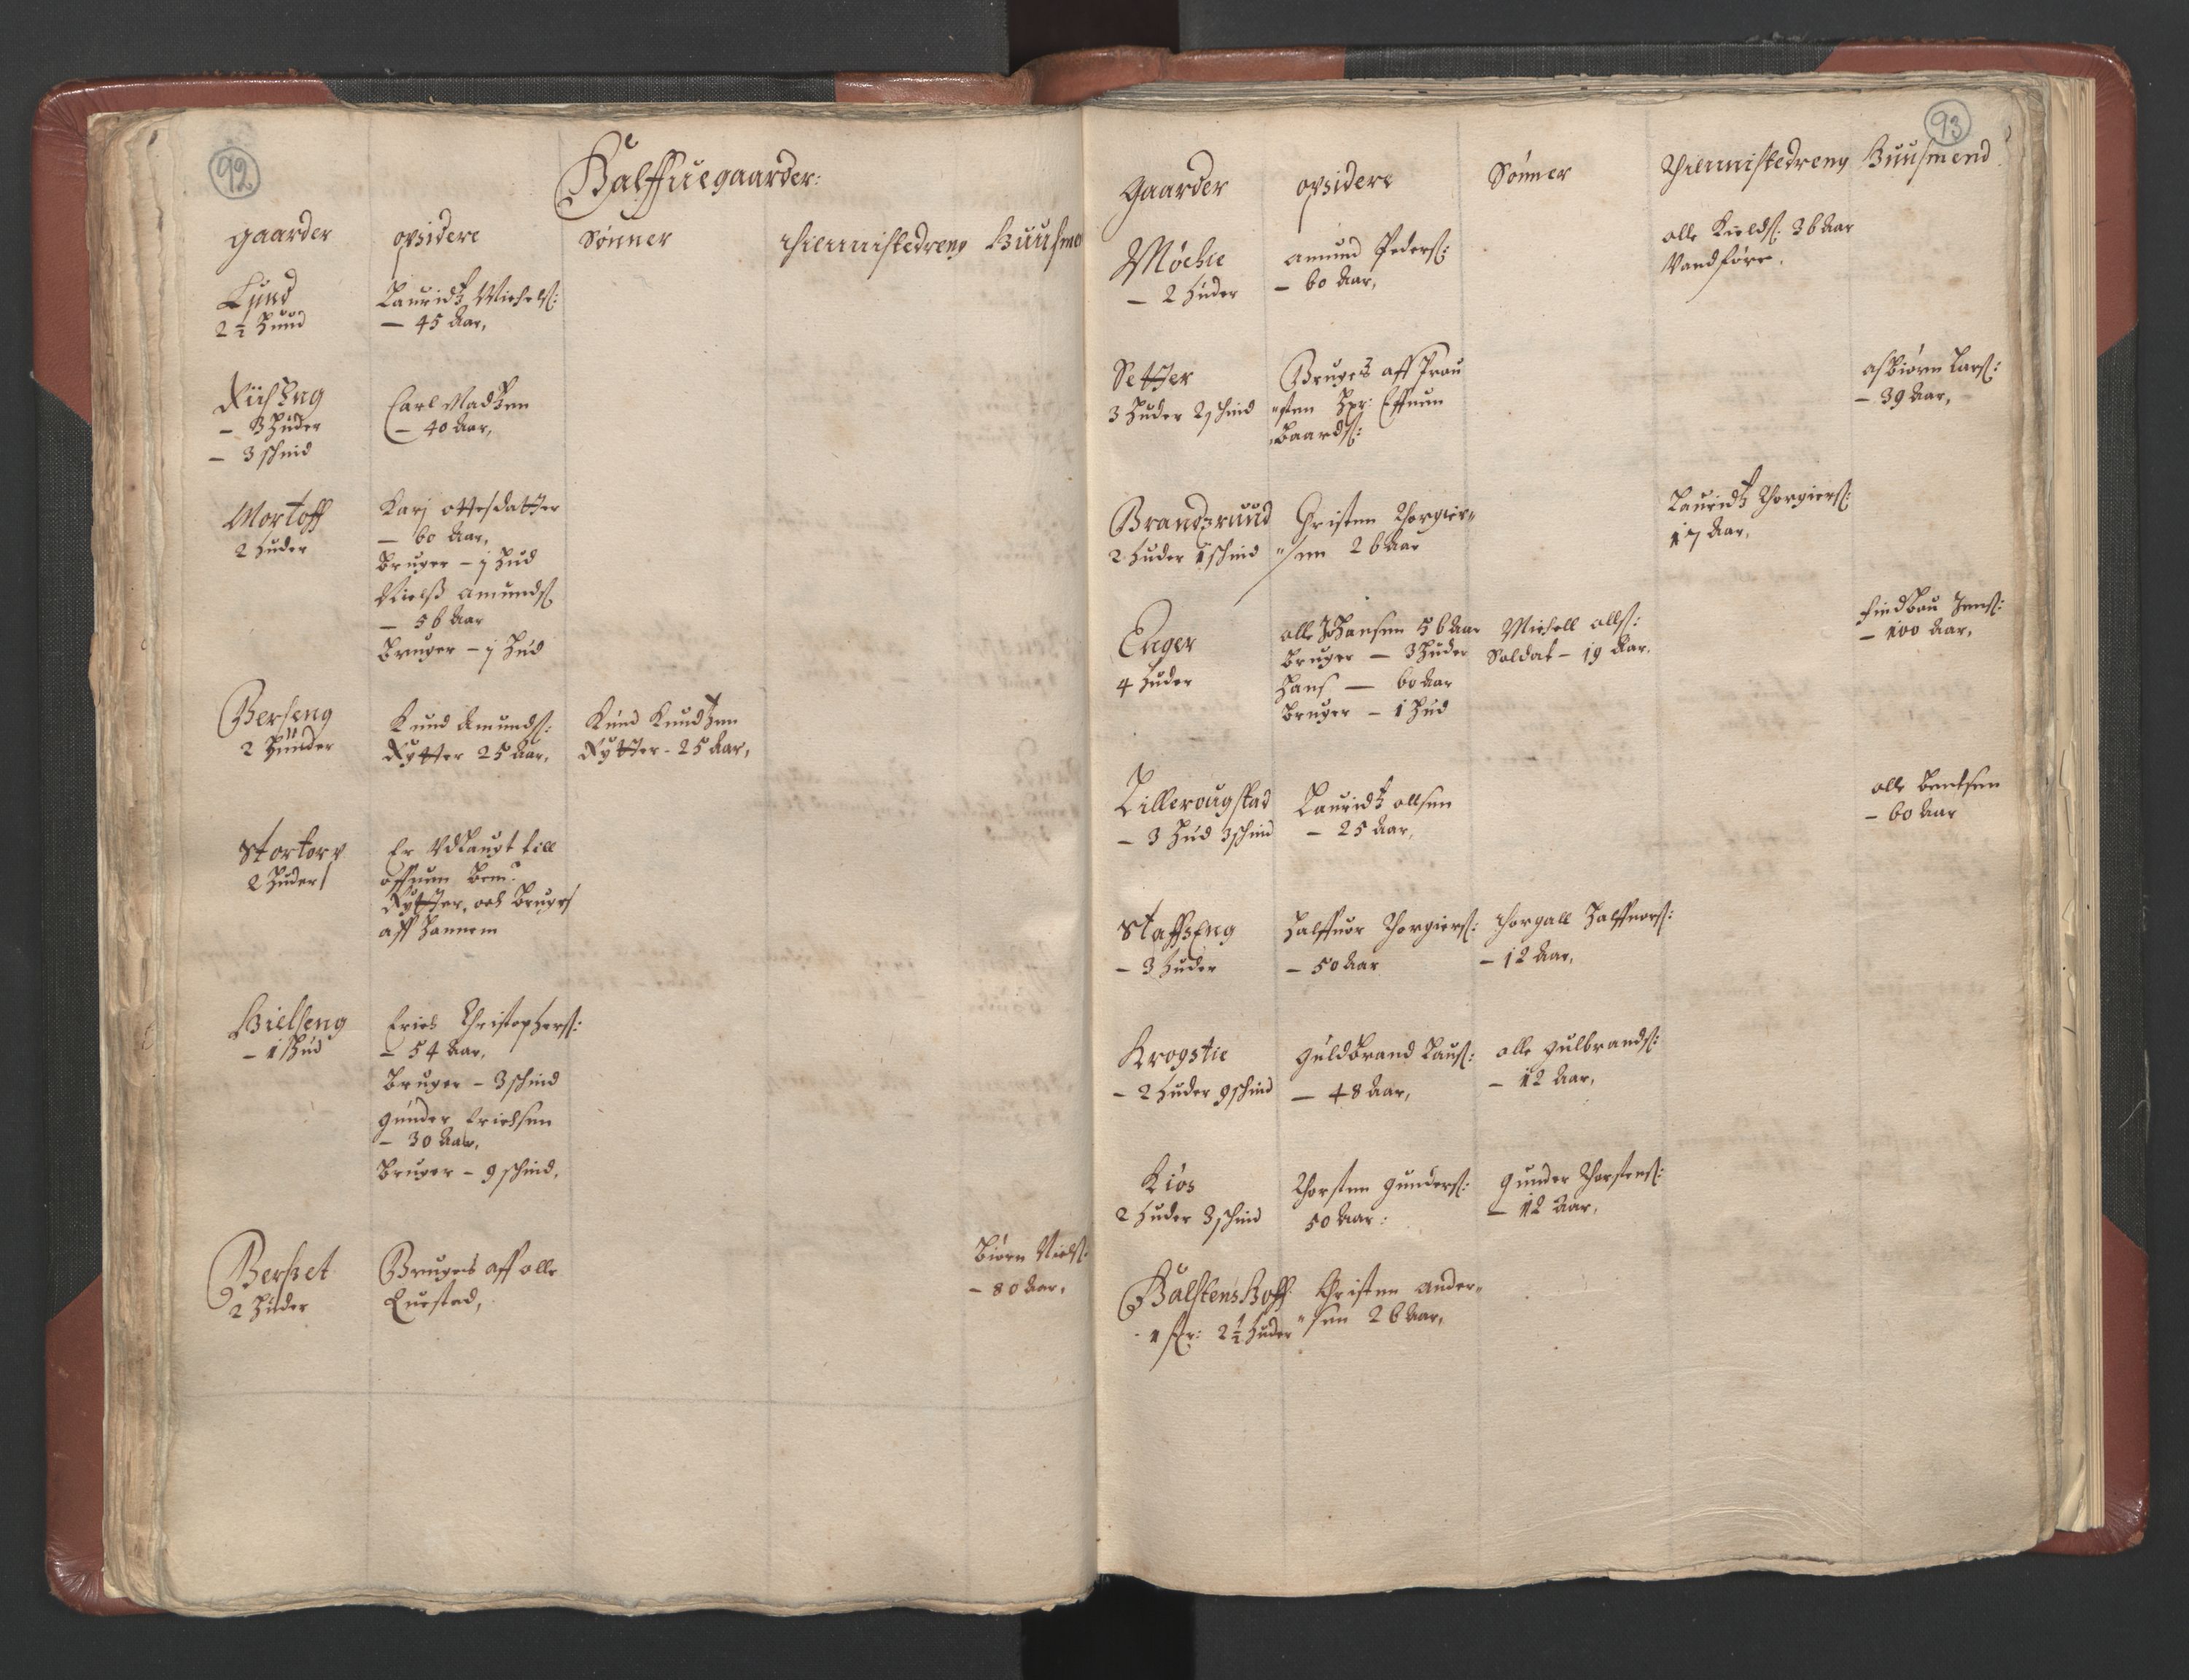 92
Halffuegaarder:
gaarder opsidere Sønner thiennistedreng Huusme
Lund
2½ Hund
Lauridtz Michels:
– 45 Aar,
– 3 Huder
– 3 schind
Carl Madtzen
– 40 Aar,
Mortoff
2 Huder
Karj ottesdatter
– 60 Aar,
Bruger – j Hud
Nielß Amunds
– 56 Aar
Bruger – j Hud
Berseng
2 Hunder
Knud Amunds:
Rytter 25 Aar,
Knud Knudtzen
Rytter - 25 Aar,
Stortorp
2 Huder
Er Vdlaugt till
offuen Bem:
Rytter, och Bruges
aff hannem
Hielseng
– 1 Hud
Erich Christophers:
– 54 Aar,
Bruger – 3 schind
gunder Erichsen
– 30 Aar,
Bruger – 9 schind,
Berset
2 Huder
Bruges aff olle
Biørn Niels:
– 80 Aar,
93
Gaarder opsidere Sønner thiennistedreng Huusmend
Møchie
– 2 Huder
Amund Peders:
– 60 Aar,
olle Kields: 26 Aar
Vandføre,
Setter
3 Huder 2 schind
Bruges aff Prou
"sten Her: Effuen
Baards:
Asbiørn Lars:
– 39 Aar,
Brandzruud
2 Huder 1 schind
Christen Thorgier"
"sen 26 Aar
Lauridtz Thorgiers:
17 Aar,
Enger
4 Huder
olle Johansen 56 Aar
Bruger – 3 Huder
Hans – 60 Aar
Bruger – 1 Hud
Michell olls:
Soldat – 19 Aar,
Findbou Jens:
– 100 Aar,
Lillerougstad
– 3 Hud 3 schind
Lauridtz ollsen
– 25 Aar,
olle Bentsen
– 60 Aar
Staffseng
– 3 Huder
Halffuor Thorgiers:
– 50 Aar
Thorgall Halffuors:
– 12 Aar,
Krogstie
– 2 Huder 9 schind
Guldbrand Laus:
– 48 Aar,
olle gulbrands:
– 12 Aar,
Kiøs
2 Huder 3 schind
Thorsten gunders:
50 Aar:
gunder Thorstens:
– 12 Aar,
Halstenshoff:
Christen Ander"
"sen 26 Aar,
2½ Huder